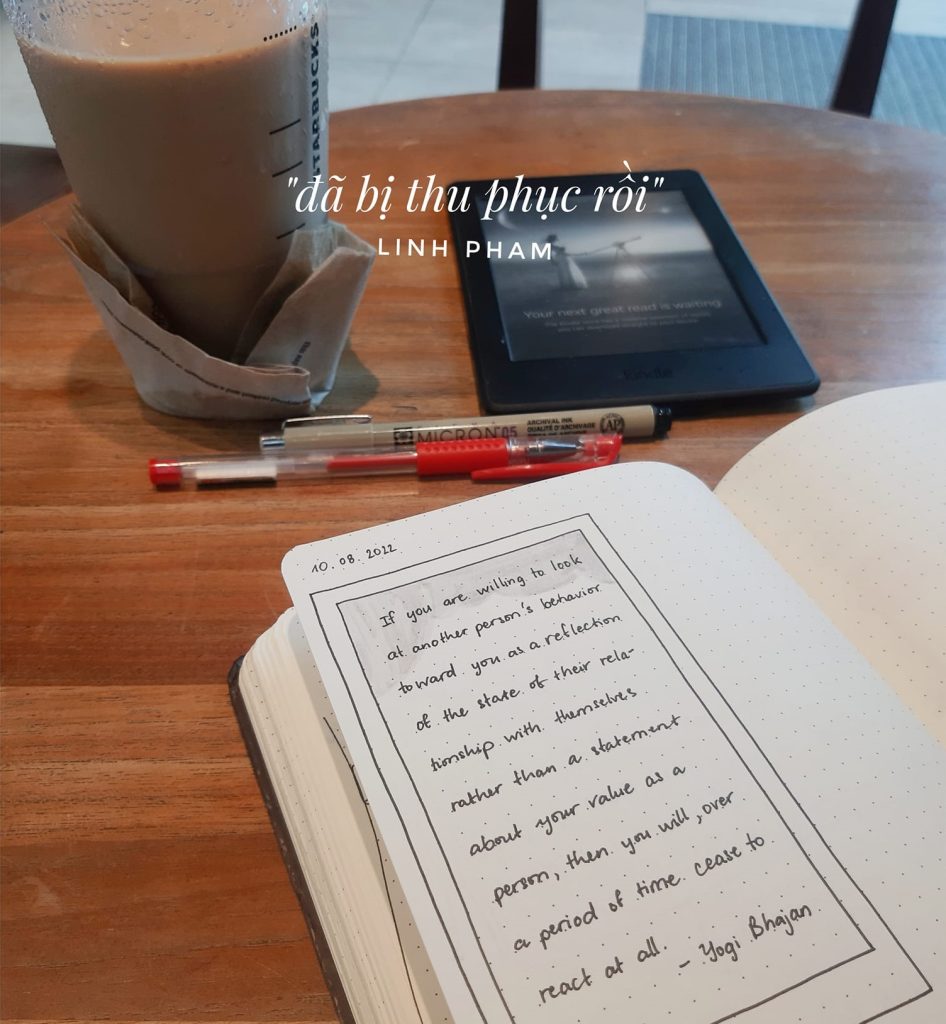 STARBUCKS
"đã bị thu phục rồi"
LINH PHAM
Your next great read is waiting
kindle
MICRON 05
ARCHIVAL INK
QUALITÉ D'ARCHIVAGE
AP
10.08.2022
If you are willing to look
at another person's behavior
toward you as a reflection
of the state of their rela-
tionship with themselves
rather than a statement
about your value as a
person, then you will, over
a period of time cease to
react at all.
- Yogi Bhajan